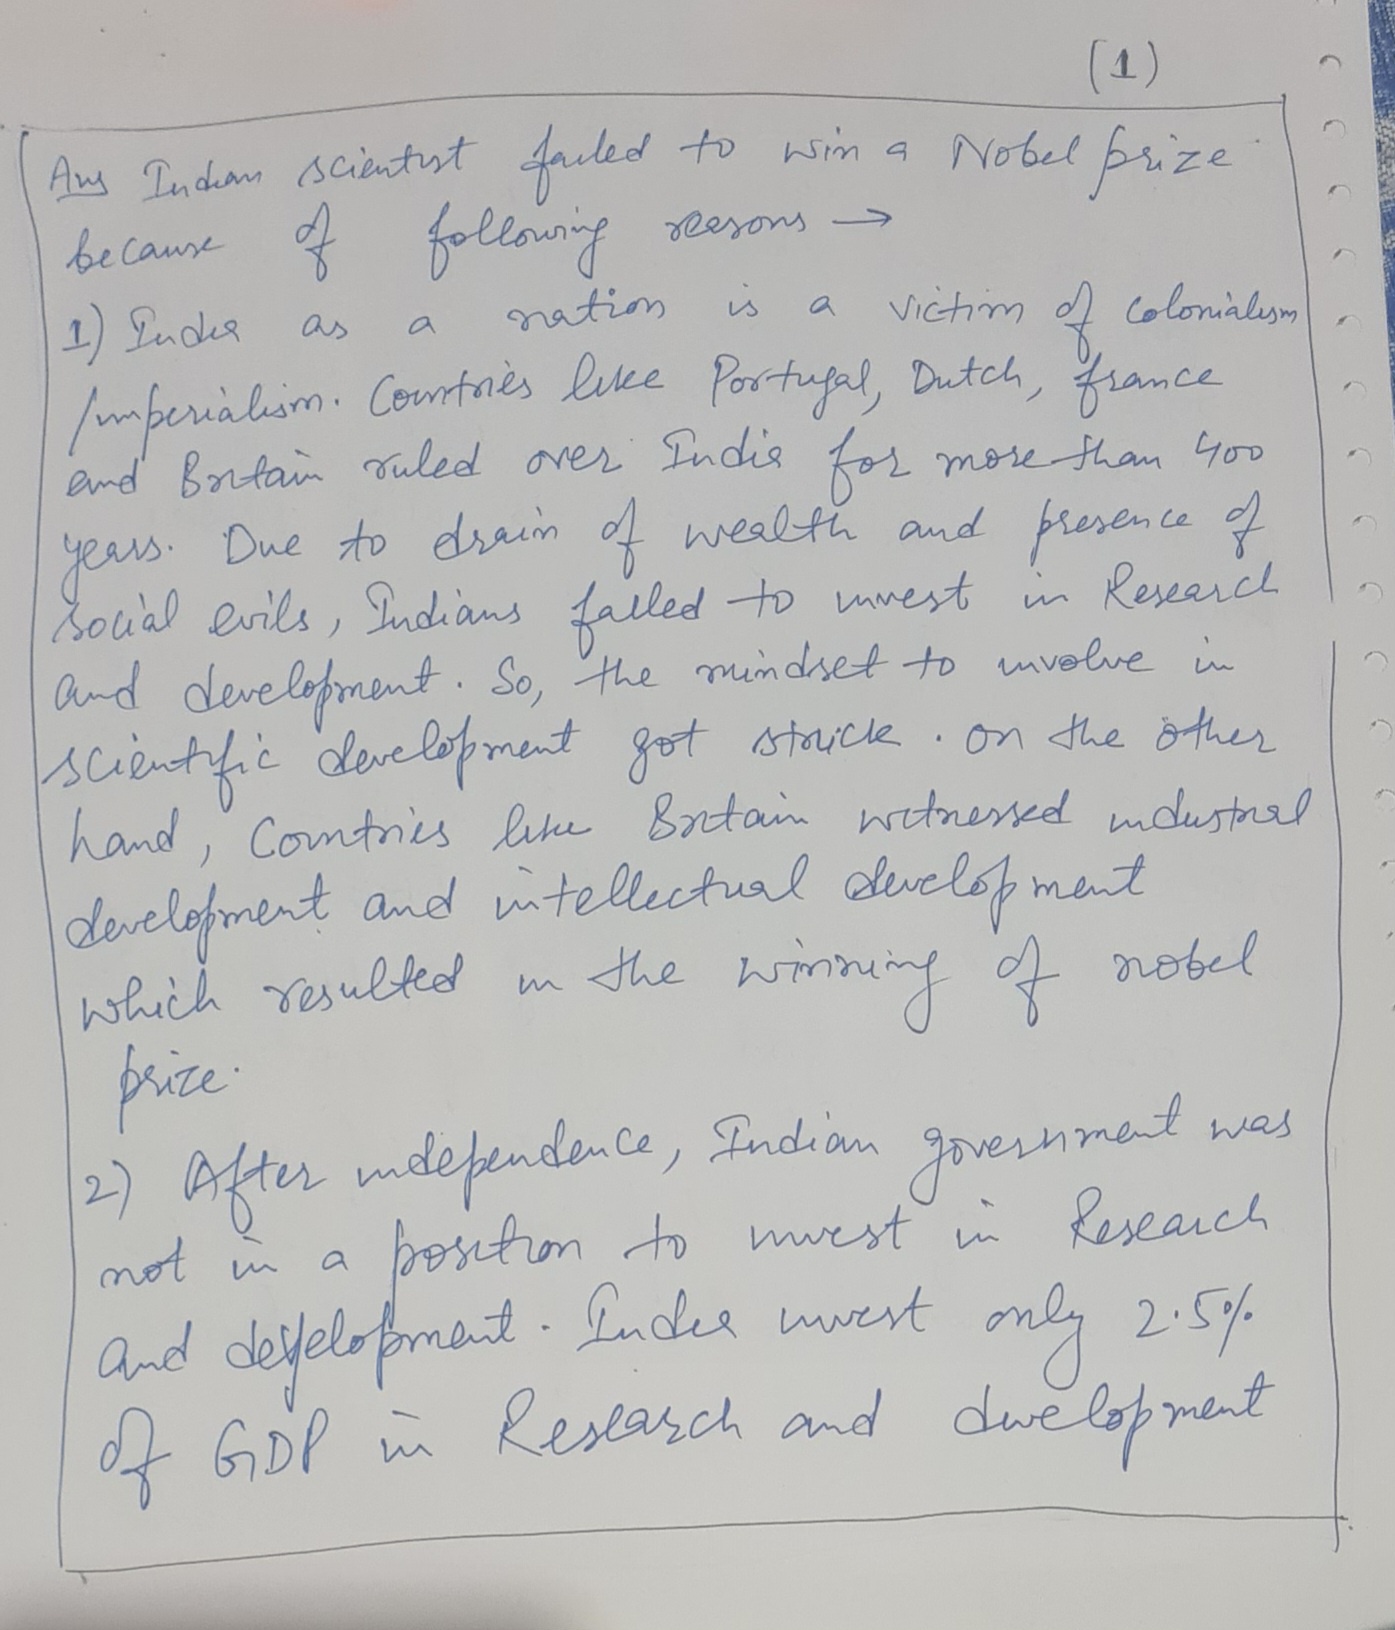 (1)
Ans Indian scientist failed to win a Nobel prize
because of following reasons →
1) India as a nation is a victim of colonialism
/imperialism. Countries like Portugal, Dutch, france
and Britain ruled over India for more than 400
years. Due to drain of wealth and presence of
social evils, Indians failed to invest in Research
and development. So, the mindset to involve in
scientific development got struck. on the other
hand, Countries like Britain witnessed industrial
development and intellectual development
which resulted in the winning of nobel
prize.
2) After independence, Indian government was
not in a position to invest in Research
and development. India invest only 2.5%
of GDP in Research and development